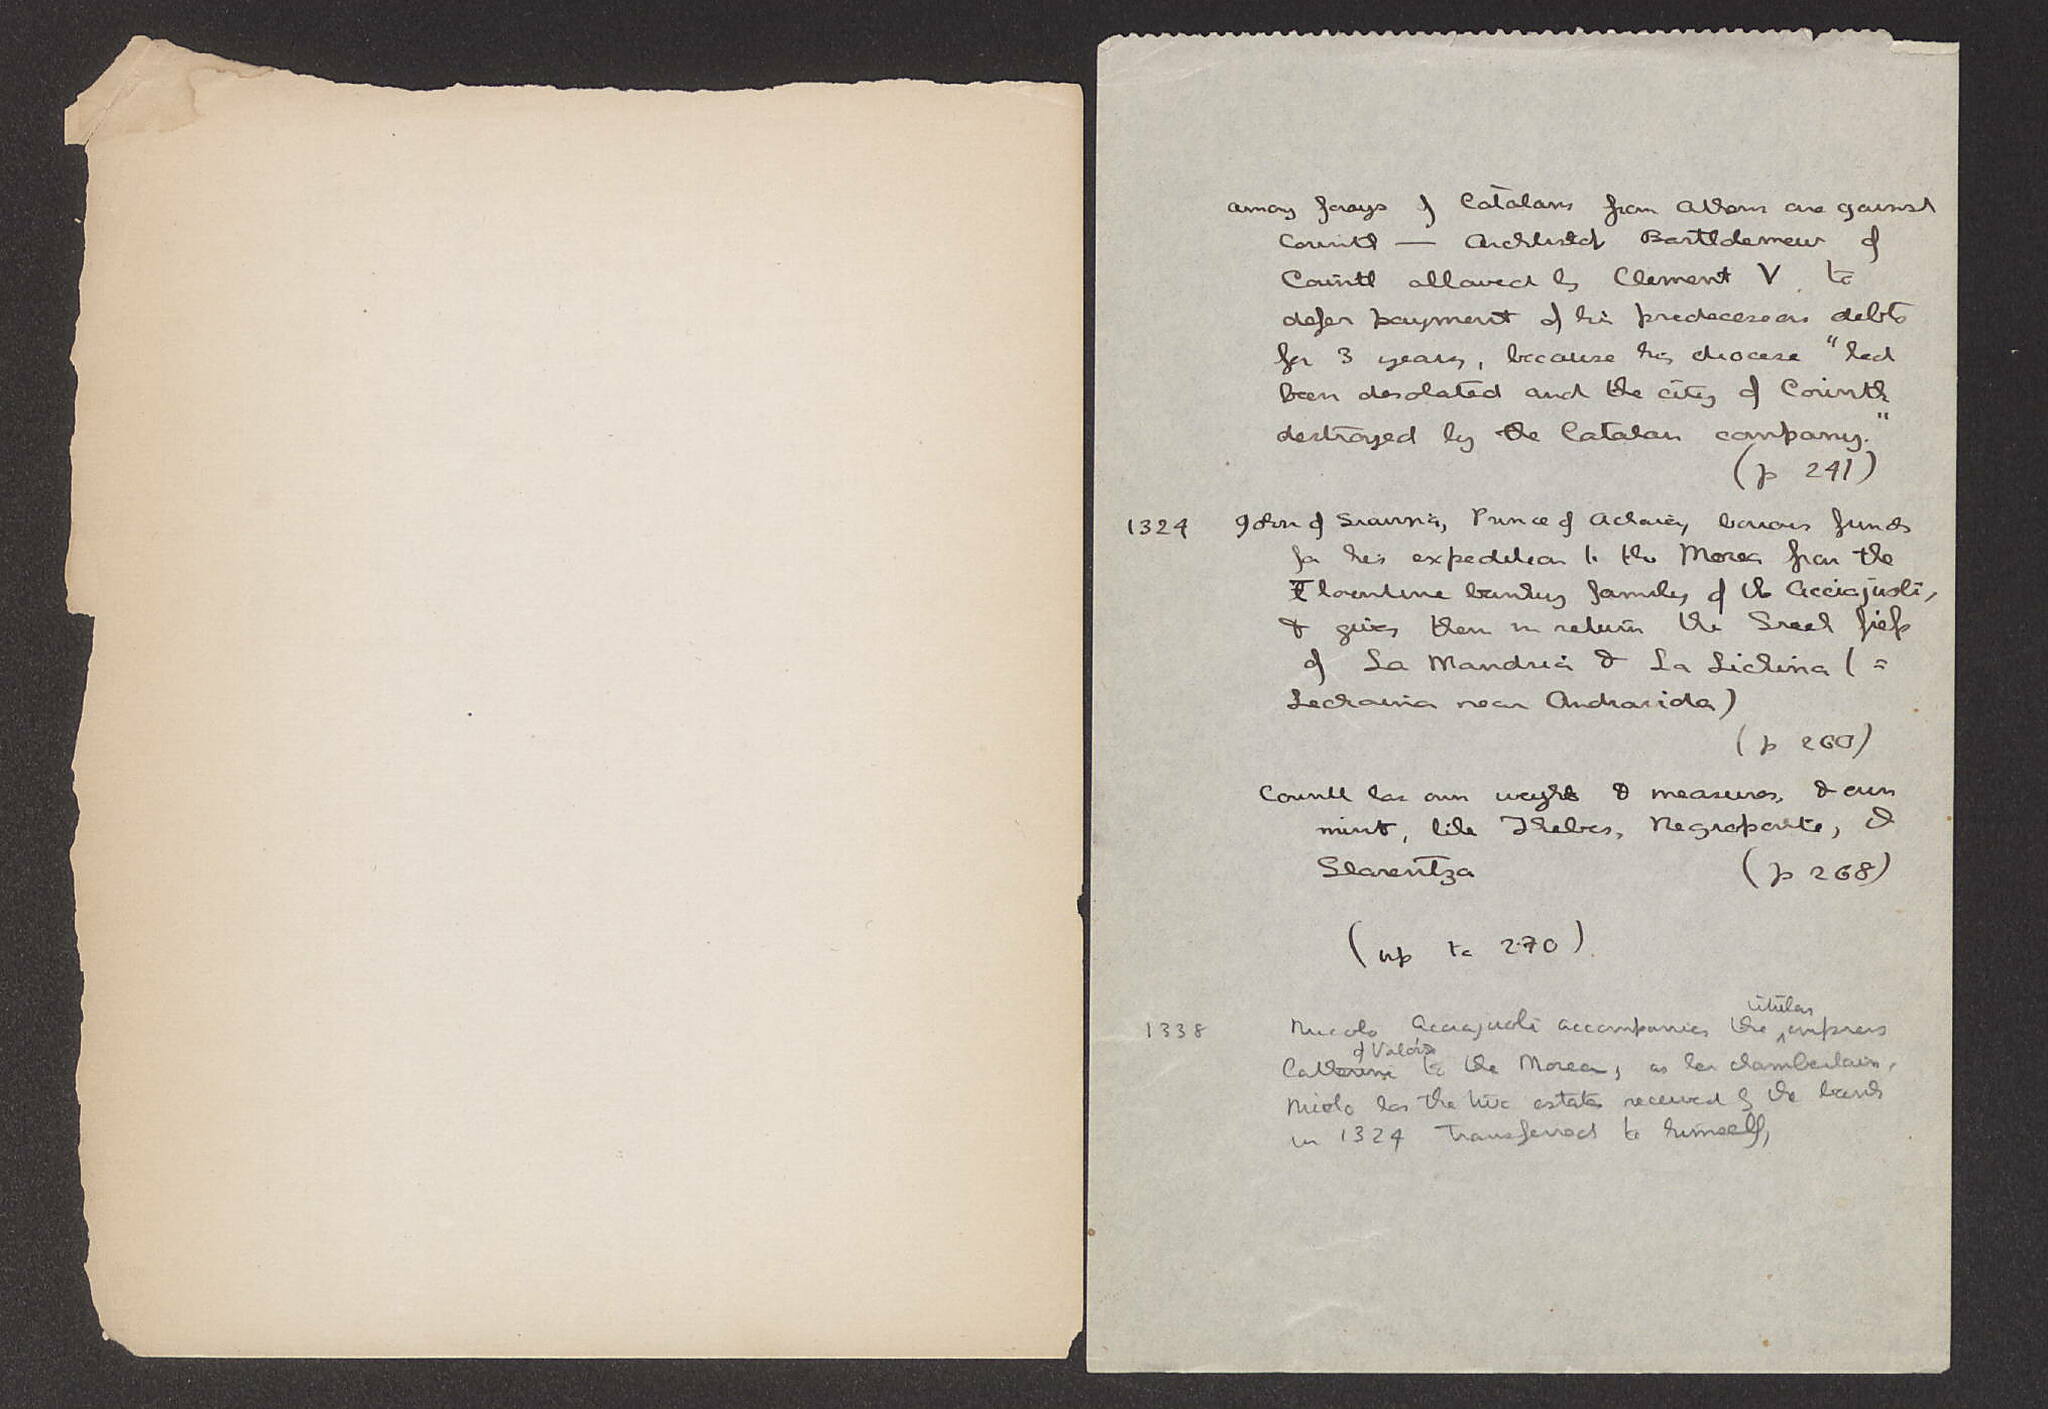 among forays of Catalans from Athens one against
Corinth — Archbishop Bartholomew of
Corinth allowed by Clement V to
defer payment of his predecessors debts
for 3 years, because his diocese "had
been desolated and the city of Corinth
destroyed by the Catalan company."
(p 241)
1324 John of Gravina, Prince of Achaia, borrows funds
for his expedition to the Morea from the
Florentine banking family of the Acciajuoli,
& gives them in return the Greek fiefs
of La Mandria & La Lichina (=
Lechaina near Andravida)
(p 260)
Corinth has own weights & measures, & own
mint, like Thebes, Negroponte, &
Glarentza (p 268)
(up to 270)
1338 Niccolo Acciajuoli accompanies the titular empress
Catherine of Valois to the Morea, as her chamberlain.
Niccolo has the two estates received by the bank
in 1324 transferred to himself,